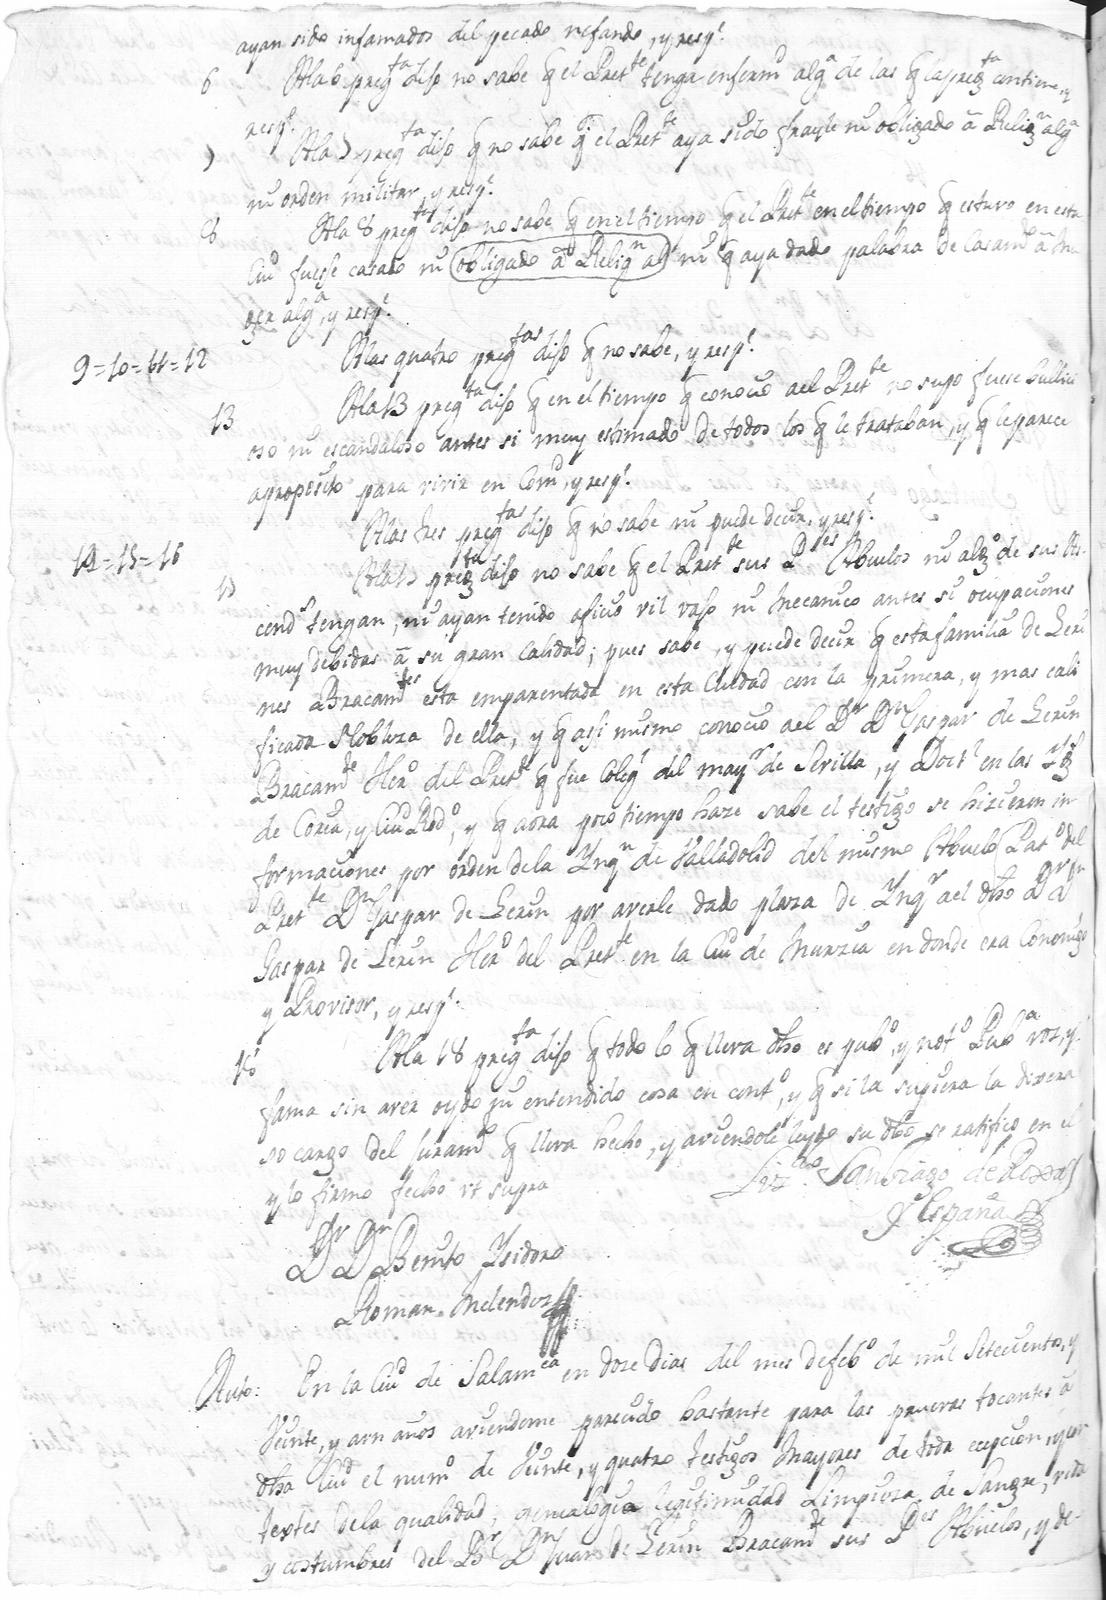 ayan sido infamados del pecado nefando, y resp.e
6 A la 6 preg.ta dijo no sabe q el Pret.te tenga enferm.d alg.a de las q la preg.ta contiene, y
resp.e
7 A la 7 preg.ta dijo q no sabe q el Pret.te aya sido frayle ni obligado â Relig.n alg.a
ni orden militar, y resp.e
8 A la 8 preg.ta dijo no sabe q en el tiempo q el Pret.te en el tiempo q estuvo en esta
Ciu.d fuesse casado ni obligado â Relig.n al ni q aya dado palabra de Casam.to â mu
ger alg.a, y resp.e
9=10=11=12 A las quatro preg.tas dijo q no sabe, y resp.e
13 A la 13 preg.ta dijo q en el tiempo q conocio ael Pret.te no supo fuese bullici
oso ni escandaloso antes si muy estimado de todos los q le trataban, y q le parece
aproposito para vivir en Com.d, y resp.e
14=15=16 A las tres preg.tas dijo q no sabe ni puede decir, y resp.e
17 A la 17 preg.ta dijo no sabe q el Pret.te sus P.es Abuelos ni alg.o de sus As-
cend.s tengan, ni ayan tenido oficio vil vajo ni mecanico antes si ocupaciones
muy debidas â su gran Calidad; pues sabe, y puede decir q esta familia de Leri
nes Bracam.tes esta emparentada en esta Ciudad con la primera, y mas cali
ficada Nobleza de ella, y q assi mismo conocio ael D.r D.n Gaspar de Lerin
Bracam.te Her.o del Pret.te q fue Coleg.l del may.r de Sevilla, y Doct.l en las
de Coria, y Ciu.d Rod.o, y q aora poco tiempo haze sabe el testigo se hizieron in
formaciones por orden de la Ynq.n de Valladolid del mismo Abuelo Pat.o del
Pret.te D.n Gaspar de Lerin por averle dado plaza de Ynq.r ael dho D.r D.n
Gaspar de Lerin Her.o del Pret.te en la Ciu.d de Murzia en donde era Canonigo
y Provisor, y resp.e
18 A la 18 preg.ta dijo q todo lo q lleva dho es pub.o, y not.o Pub.a voz, y
fama sin aver oydo ni entendido cosa en cont.o, y q si la supiera la dixera
so cargo del juram.to q lleva hecho, y aviendole leydo su dho se ratifico en el
y lo firmo fecho ut supra
Liz.do Santiago de
y España
D.r D.n Benito Ysidoro
Roman Melendez
Auto: En la Ciu.d de Salam.ca en doze dias del mes de feb.o de mil Setecientos, y
Veinte, y años aviendome parecido bastante para las pruevas tocantes â
dha Ciu.d el num.o de Veinte, y quatro testigos mayores de toda ecepcion, y con
textes de la qualidad, genealogia legitimidad Limpieza de Sangre, vida
y costumbres del D.r D.n Juan de Lerin Bracam.te sus P.es Abuelos, y de-